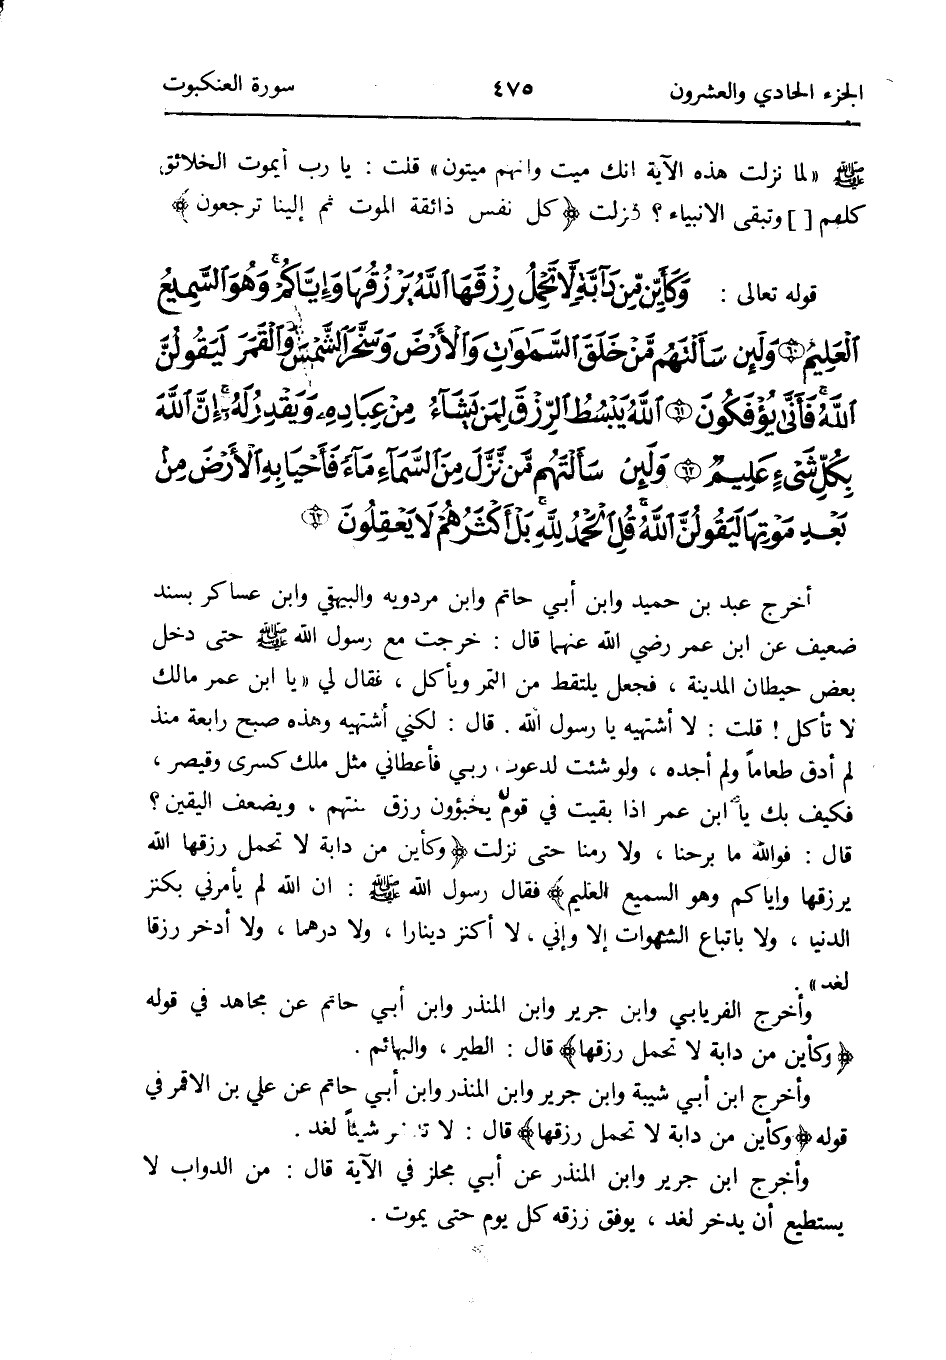 الجزء الحادي والعشرون ٤٧٥ سورة العنكبوت
ﷺ «لما نزلت هذه الآية انك ميت وانهم ميتون» قلت : يا رب أيموت الخلائق
كلهم [ ] وتبقى الانبياء ؟ نزلت ﴿كل نفس ذائقة الموت ثم إلينا ترجعون﴾
قوله تعالى : وَكَأَيِّن مِّن دَآبَّةٍ لَّا تَحْمِلُ رِزْقَهَا ٱللَّهُ يَرْزُقُهَا وَإِيَّاكُمْ ۚ وَهُوَ ٱلسَّمِيعُ
ٱلْعَلِيمُ ۝٦٠ وَلَئِن سَأَلْتَهُم مَّنْ خَلَقَ ٱلسَّمَٰوَٰتِ وَٱلْأَرْضَ وَسَخَّرَ ٱلشَّمْسَ وَٱلْقَمَرَ لَيَقُولُنَّ
ٱللَّهُ ۖ فَأَنَّىٰ يُؤْفَكُونَ ۝٦١ ٱللَّهُ يَبْسُطُ ٱلرِّزْقَ لِمَن يَشَآءُ مِنْ عِبَادِهِۦ وَيَقْدِرُ لَهُۥٓ ۚ إِنَّ ٱللَّهَ
بِكُلِّ شَىْءٍ عَلِيمٌ ۝٦٢ وَلَئِن سَأَلْتَهُم مَّن نَّزَّلَ مِنَ ٱلسَّمَآءِ مَآءً فَأَحْيَا بِهِ ٱلْأَرْضَ مِنۢ
بَعْدِ مَوْتِهَا لَيَقُولُنَّ ٱللَّهُ ۚ قُلِ ٱلْحَمْدُ لِلَّهِ ۚ بَلْ أَكْثَرُهُمْ لَا يَعْقِلُونَ ۝٦٣
أخرج عبد بن حميد وابن أبي حاتم وابن مردويه والبيهقي وابن عساكر بسند
ضعيف عن ابن عمر رضي الله عنهما قال : خرجت مع رسول الله ﷺ حتى دخل
بعض حيطان المدينة ، فجعل يلتقط من التمر ويأكل ، فقال لي «يا ابن عمر مالك
لا تأكل ! قلت : لا أشتهيه يا رسول الله . قال : لكني أشتهيه وهذه صبح رابعة منذ
لم أذق طعاماً ولم أجده ، ولو شئت لدعوت ربي فأعطاني مثل ملك كسرى وقيصر ،
فكيف بك يا ابن عمر اذا بقيت في قوم يخبؤون رزق سنتهم ، ويضعف اليقين ؟
قال : فوالله ما برحنا ، ولا رمنا حتى نزلت ﴿وكأين من دابة لا تحمل رزقها الله
يرزقها وإياكم وهو السميع العليم﴾ فقال رسول الله ﷺ : ان الله لم يأمرني بكنز
الدنيا ، ولا باتباع الشهوات إلا وإني ، لا أكنز دينارا ، ولا درهما ، ولا أدخر رزقا
لغد» .
وأخرج الفريابي وابن جرير وابن المنذر وابن أبي حاتم عن مجاهد في قوله
﴿وكأين من دابة لا تحمل رزقها﴾ قال : الطير ، والبهائم .
وأخرج ابن أبي شيبة وابن جرير وابن المنذر وابن أبي حاتم عن علي بن الاقمر في
قوله ﴿وكأين من دابة لا تحمل رزقها﴾ قال : لا شيئاً لغد .
وأخرج ابن جرير وابن المنذر عن أبي مجلز في الآية قال : من الدواب لا
يستطيع أن يدخر لغد ، يوفق رزقه كل يوم حتى يموت .